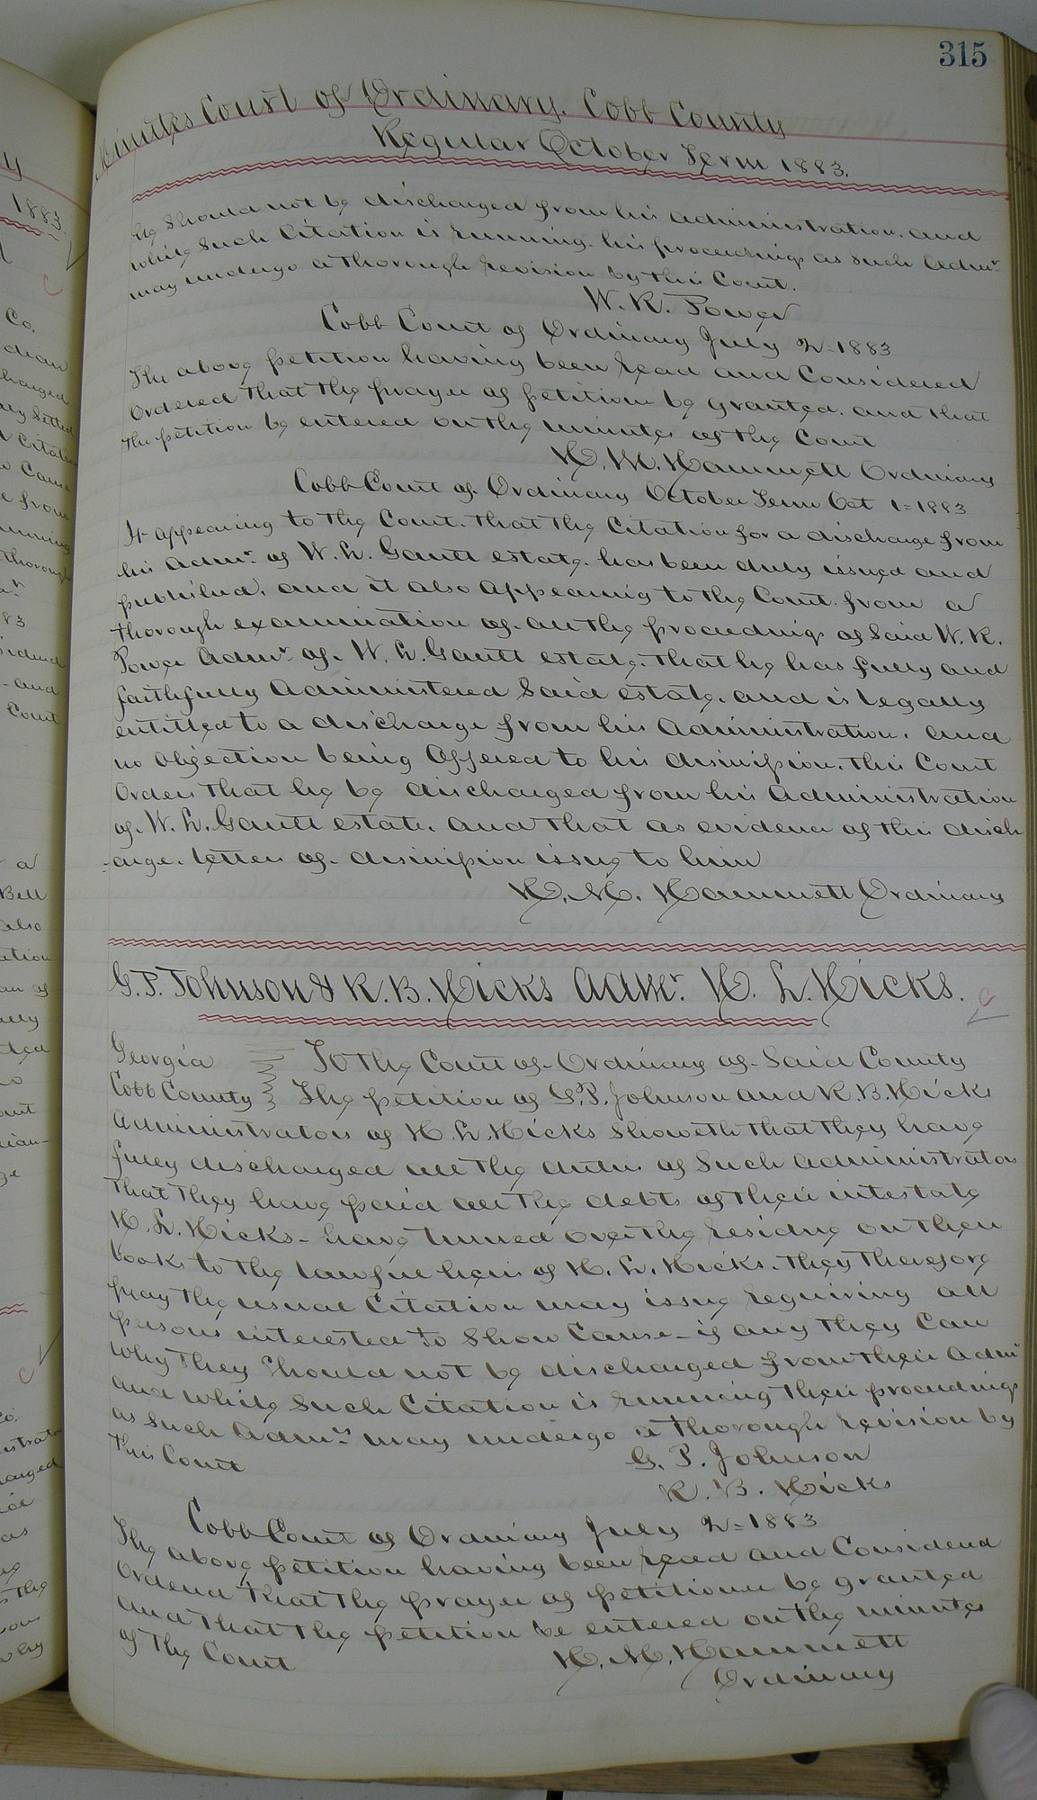 315
Minutes Court of Ordinary. Cobb County
Regular October Term 1883.
he should not be discharged from his administration. and
while such Citation is running. his proceedings as such Admr
may undergo a thorough revision by this Court.
W. R. Power
Cobb Court of Ordinary July 2-1883
The above petition having been read and Considered
Ordered that the prayer of petition be granted. and that
the petition be entered on the minutes of the Court
H. M. Hammett Ordinary
Cobb Court of Ordinary October Term Oct 1-1883
It appearing to the Court. that the Citation for a discharge from
his Admr. of W. L. Gantt estate. has been duly issued and
published. and it also appearing to the Court. from a
thorough examination of all the proceedings of Said W. R.
Power Admr. of W. L. Gantt estate. that he has fully and
faithfully Administered Said estate. and is legally
entitled to a discharge from his Administration. and
no objection being Offered to his dismission. this Court
Orders that he be discharged from his Administration
of W. L. Gantt estate. and that as evidence of this disch
-arge. letters of dismission issue to him
H. M. Hammett Ordinary
G. P. Johnson & R. B. Hicks Admr. H. L. Hicks.
Georgia To the Court of Ordinary of Said County
Cobb County The petition of G. P. Johnson and R. B. Hicks
Administrators of H. L. Hicks Showeth that they have
fully discharged all the duties of Such Administrators
That they have paid all the debts of their intestate
H. L. Hicks - have turned over the residue on their
books to the lawful heirs of H. L. Hicks. they therefore
pray the usual Citation may issue requiring all
persons interested to Show Cause - if any they Can
Why they Should not be discharged from their Admr
and while Such Citation is running their proceedings
as Such Admrs may undergo a thorough revision by
this Court G. P. Johnson
R. B. Hicks
Cobb Court of Ordinary July 2-1883
The above petition having been read and Considered
Ordered that the prayer of petitioner be granted
and that the petition be entered on the minutes
of the Court H. M. Hammett
Ordinary